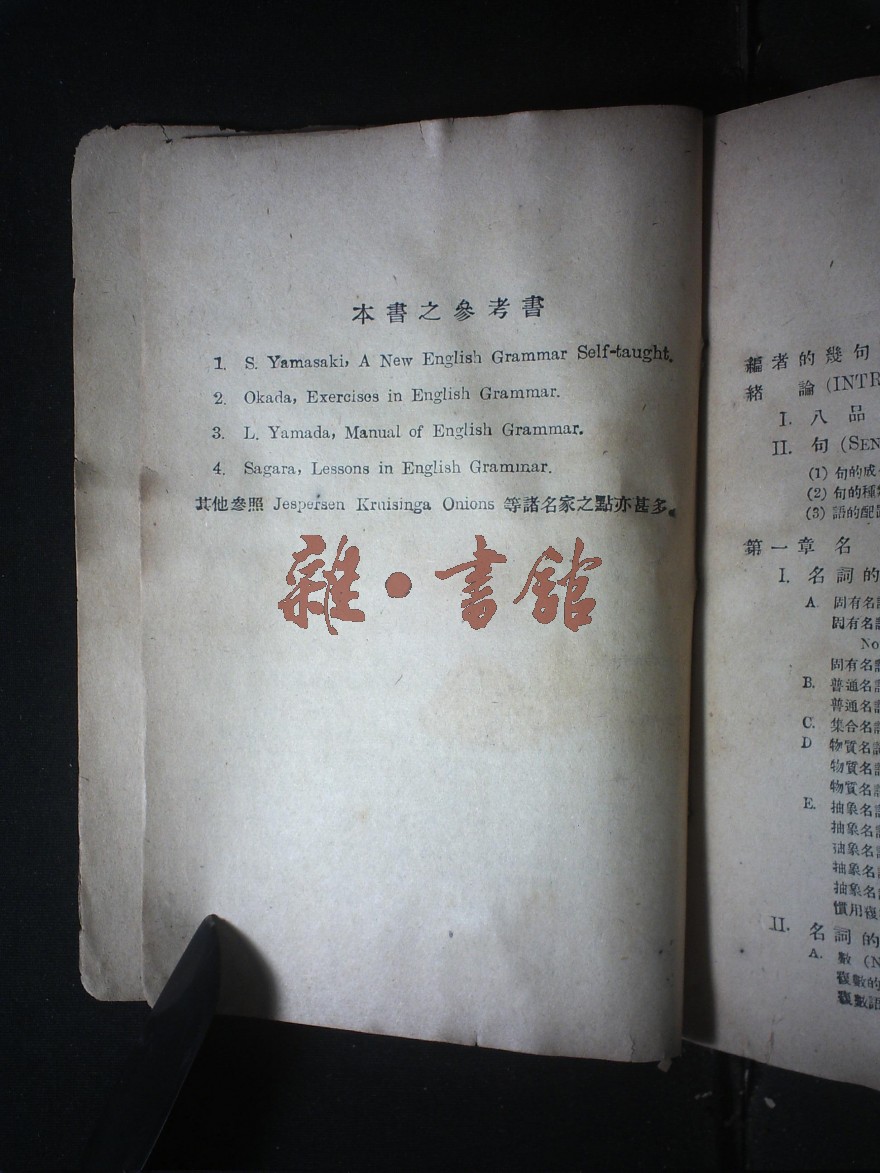 本書之參考書
1. S. Yamasaki, A New English Grammar Self-taught.
2. Okada, Exercises in English Grammar.
3. L. Yamada, Manual of English Grammar.
4. Sagara, Lessons in English Grammar.
其他參照 Jespersen Kruisinga Onions 等諸名家之點亦甚多。
雜·書館
編者的幾句
緒 論 (INTR
I. 八品
II. 句 (SEN
(1) 句的成
(2) 句的種
(3) 語的配
第一章 名
I. 名詞的
A. 固有名
固有名
No
固有名
B. 普通名
普通名
C. 集合名
D 物質名
物質名
物質名
E. 抽象名
抽象名
抽象名
抽象名
抽象名
慣用複
II. 名詞的
A. 數 (N
複數的
複數語